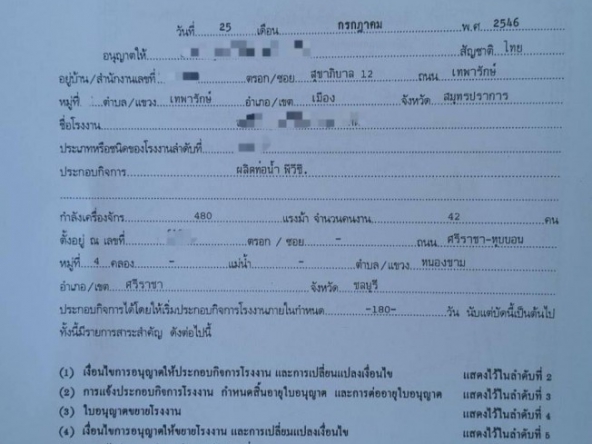 วันที่ 25 เดือน กรกฎาคม พ.ศ 2546
อนุญาตให้ สัญชาติ ไทย
อยู่บ้าน/สำนักงานเลขที่ ตรอก/ซอย สุขาภิบาล 12 ถนน เทพารักษ์
หมู่ที่ ตำบล/แขวง เทพารักษ์ อำเภอ/เขต เมือง จังหวัด สมุทรปราการ
ชื่อโรงงาน
ประเภทหรือชนิดของโรงงานลำดับที่
ประกอบกิจการ ผลิตท่อน้ำ พีวีซี.
กำลังเครื่องจักร 480 แรงม้า จำนวนคนงาน 42 คน
ตั้งอยู่ ณ เลขที่ ตรอก / ซอย - ถนน ศรีราชา-หุบบอน
หมู่ที่ 4 คลอง - แม่น้ำ - ตำบล/แขวง หนองขาม
อำเภอ/เขต ศรีราชา จังหวัด ชลบุรี
ประกอบกิจการได้โดยให้เริ่มประกอบกิจการโรงงานภายในกำหนด -180- วัน นับแต่บัดนี้เป็นต้นไป
ทั้งนี้มีรายการสาระสำคัญ ดังต่อไปนี้
(1) เงื่อนไขการอนุญาตให้ประกอบกิจการโรงงาน และการเปลี่ยนแปลงเงื่อนไข แสดงไว้ในลำดับที่ 2
(2) การแจ้งประกอบกิจการโรงงาน กำหนดสิ้นอายุใบอนุญาต และการต่ออายุใบอนุญาต แสดงไว้ในลำดับที่ 3
(3) ใบอนุญาตขยายโรงงาน แสดงไว้ในลำดับที่ 4
(4) เงื่อนไขการอนุญาตให้ขยายโรงงาน และการเปลี่ยนแปลงเงื่อนไข แสดงไว้ในลำดับที่ 5